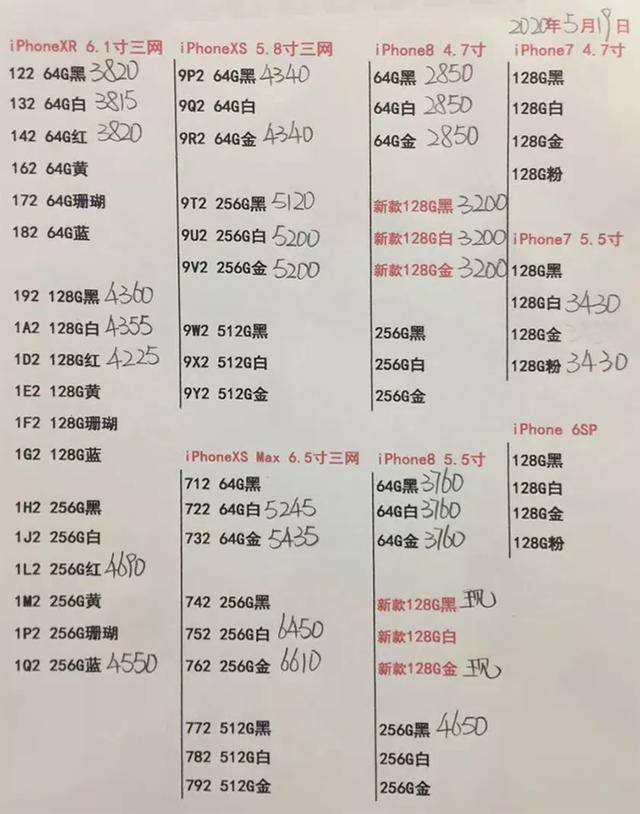 2020年5月19日
iPhoneXR 6.1寸三网
122 64G黑 3820
132 64G白 3815
142 64G红 3820
162 64G黄
172 64G珊瑚
182 64G蓝
192 128G黑 4360
1A2 128G白 4355
1D2 128G红 4225
1E2 128G黄
1F2 128G珊瑚
1G2 128G蓝
1H2 256G黑
1J2 256G白
1L2 256G红 4690
1M2 256G黄
1P2 256G珊瑚
1Q2 256G蓝 4550
iPhoneXS 5.8寸三网
9P2 64G黑 4340
9Q2 64G白
9R2 64G金 4340
9T2 256G黑 5120
9U2 256G白 5200
9V2 256G金 5200
9W2 512G黑
9X2 512G白
9Y2 512G金
iPhoneXS Max 6.5寸三网
712 64G黑
722 64G白 5245
732 64G金 5435
742 256G黑
752 256G白 6450
762 256G金 6610
772 512G黑
782 512G白
792 512G金
iPhone8 4.7寸
64G黑 2850
64G白 2850
64G金 2850
新款128G黑 3200
新款128G白 3200
新款128G金 3200
256G黑
256G白
256G金
iPhone8 5.5寸
64G黑 3760
64G白 3760
64G金 3760
新款128G黑 现
新款128G白
新款128G金 现
256G黑 4650
256G白
256G金
iPhone7 4.7寸
128G黑
128G白
128G金
128G粉
iPhone7 5.5寸
128G黑
128G白 3430
128G金
128G粉 3430
iPhone 6SP
128G黑
128G白
128G金
128G粉